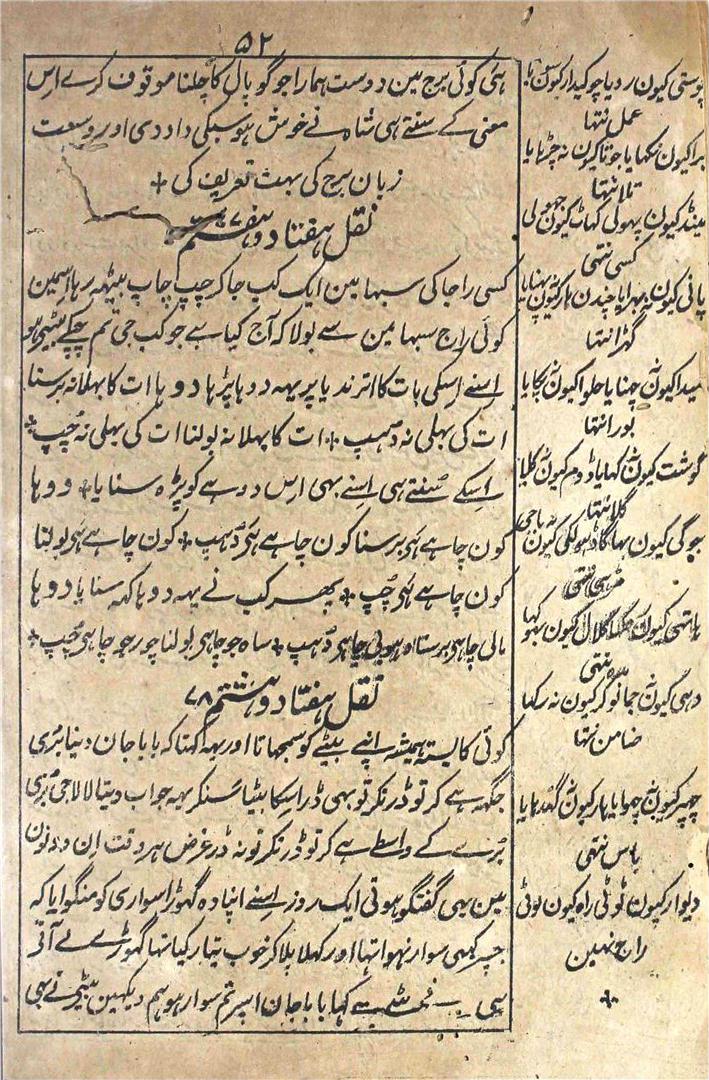 ۵۲
ہئی کوئی برج مین دوست ہمارا جو گوپال کا چلنا موقوف کرے اِس
معنی کے سنتے ہی شاہ نے خوش ہو سبکی داد دی اور وسعت
زبان برج کی بہت تعریف کی +
نقل ہفتاد و ہفتم ۷۷
کسی راجا کی سبھا مین ایک کب جا کر چپ چاپ بیٹھ رہا اسمین
کوئی راج سبھا مین سے بولا کہ آج کیا ہے جو کب جی تم چپکے بیٹھے ہو
اِسنے اِسکی بات کا اتر ندیا پر یہہ دوہا پڑھا دوہا ات کا بھلا نہ برسنا
ات کی بھلی نہ دُھپ + ات کا بھلا نہ بولنا ات کی بھلی نہ چُپ +
اِسکے سُنتے ہی اِسنے بھی اِس دوہے کو پڑہ سنایا + دوہا
کون چاہے ہَی برسنا کون چاہے ہَی دُھپ + کون چاہے ہَی بولنا
کون چاہے ہَی چُپ + پھر کب نے یہہ دوہا کہہ سنایا دوہا
مالی چاہی برسنا دھوبی چاہی دُھپ + ساہ جو چاہی بولنا چور جو چاہی چُپ +
نقل ہفتاد و ہشتم ۷۸
کوئی کایستھ ہمیشہ اپنے بیٹے کو سمجھاتا اور یہہ کہتا کہ بابا جان دنیا بُری
جگہہ ہے کر تو ڈر نکر تو بھی ڈر اِسکا بیٹا سُنکر یہہ جواب دیتا لالا جی بُری
بُرے کے واسطے ہے کر تو ڈر نکر تو نہ ڈر غرض ہر وقت اِن دونون
مین یہی گفتگو ہوتی ایک روز اِسنے اپنا دہ گھوڑا سواری کو منگوایا کہ
جسپر کبھی سوار نہوا تھا اور کھلا پلا کر خوب تیار کیا تھا گھوڑے کے آتی
ہی بیٹے سے کہا بابا جان اسپر تم سوار ہو ہم دیکھین بیٹے نے بھی
پوستی کیون رویا چوکیدار کیون
عمل نتھا
بڑا کیون نکھایا جوتا کیون نہ چڑھایا
تلا نتھا
مینڈ کیون پھولی کھاٹ کیون جھولی
کسی نتھی
پانی کیون نہ بھرایا چندن ہار کیون نہ پہنایا
گھڑا نتھا
میدا کیون نہ چھنایا حلوا کیون نہ پکایا
بورا نتھا
گوشت کیون نہ کھایا ڈوم کیون نہ گایا
گلا نتھا
جوگی کیون بھاگا ڈھولکی کیون نہ باجی
مڑھی نتھی
ہاتھی کیون
نتھی
دہی کیون نہ جما نوکر کیون نہ رکھا
ضامن نتھا
چھپر کیون نہ چھوایا ہار کیون نہ گندھایا
پاس نتھی
دیوار کیون ٹوٹی راہ کیون لوٹی
راج نہین
+